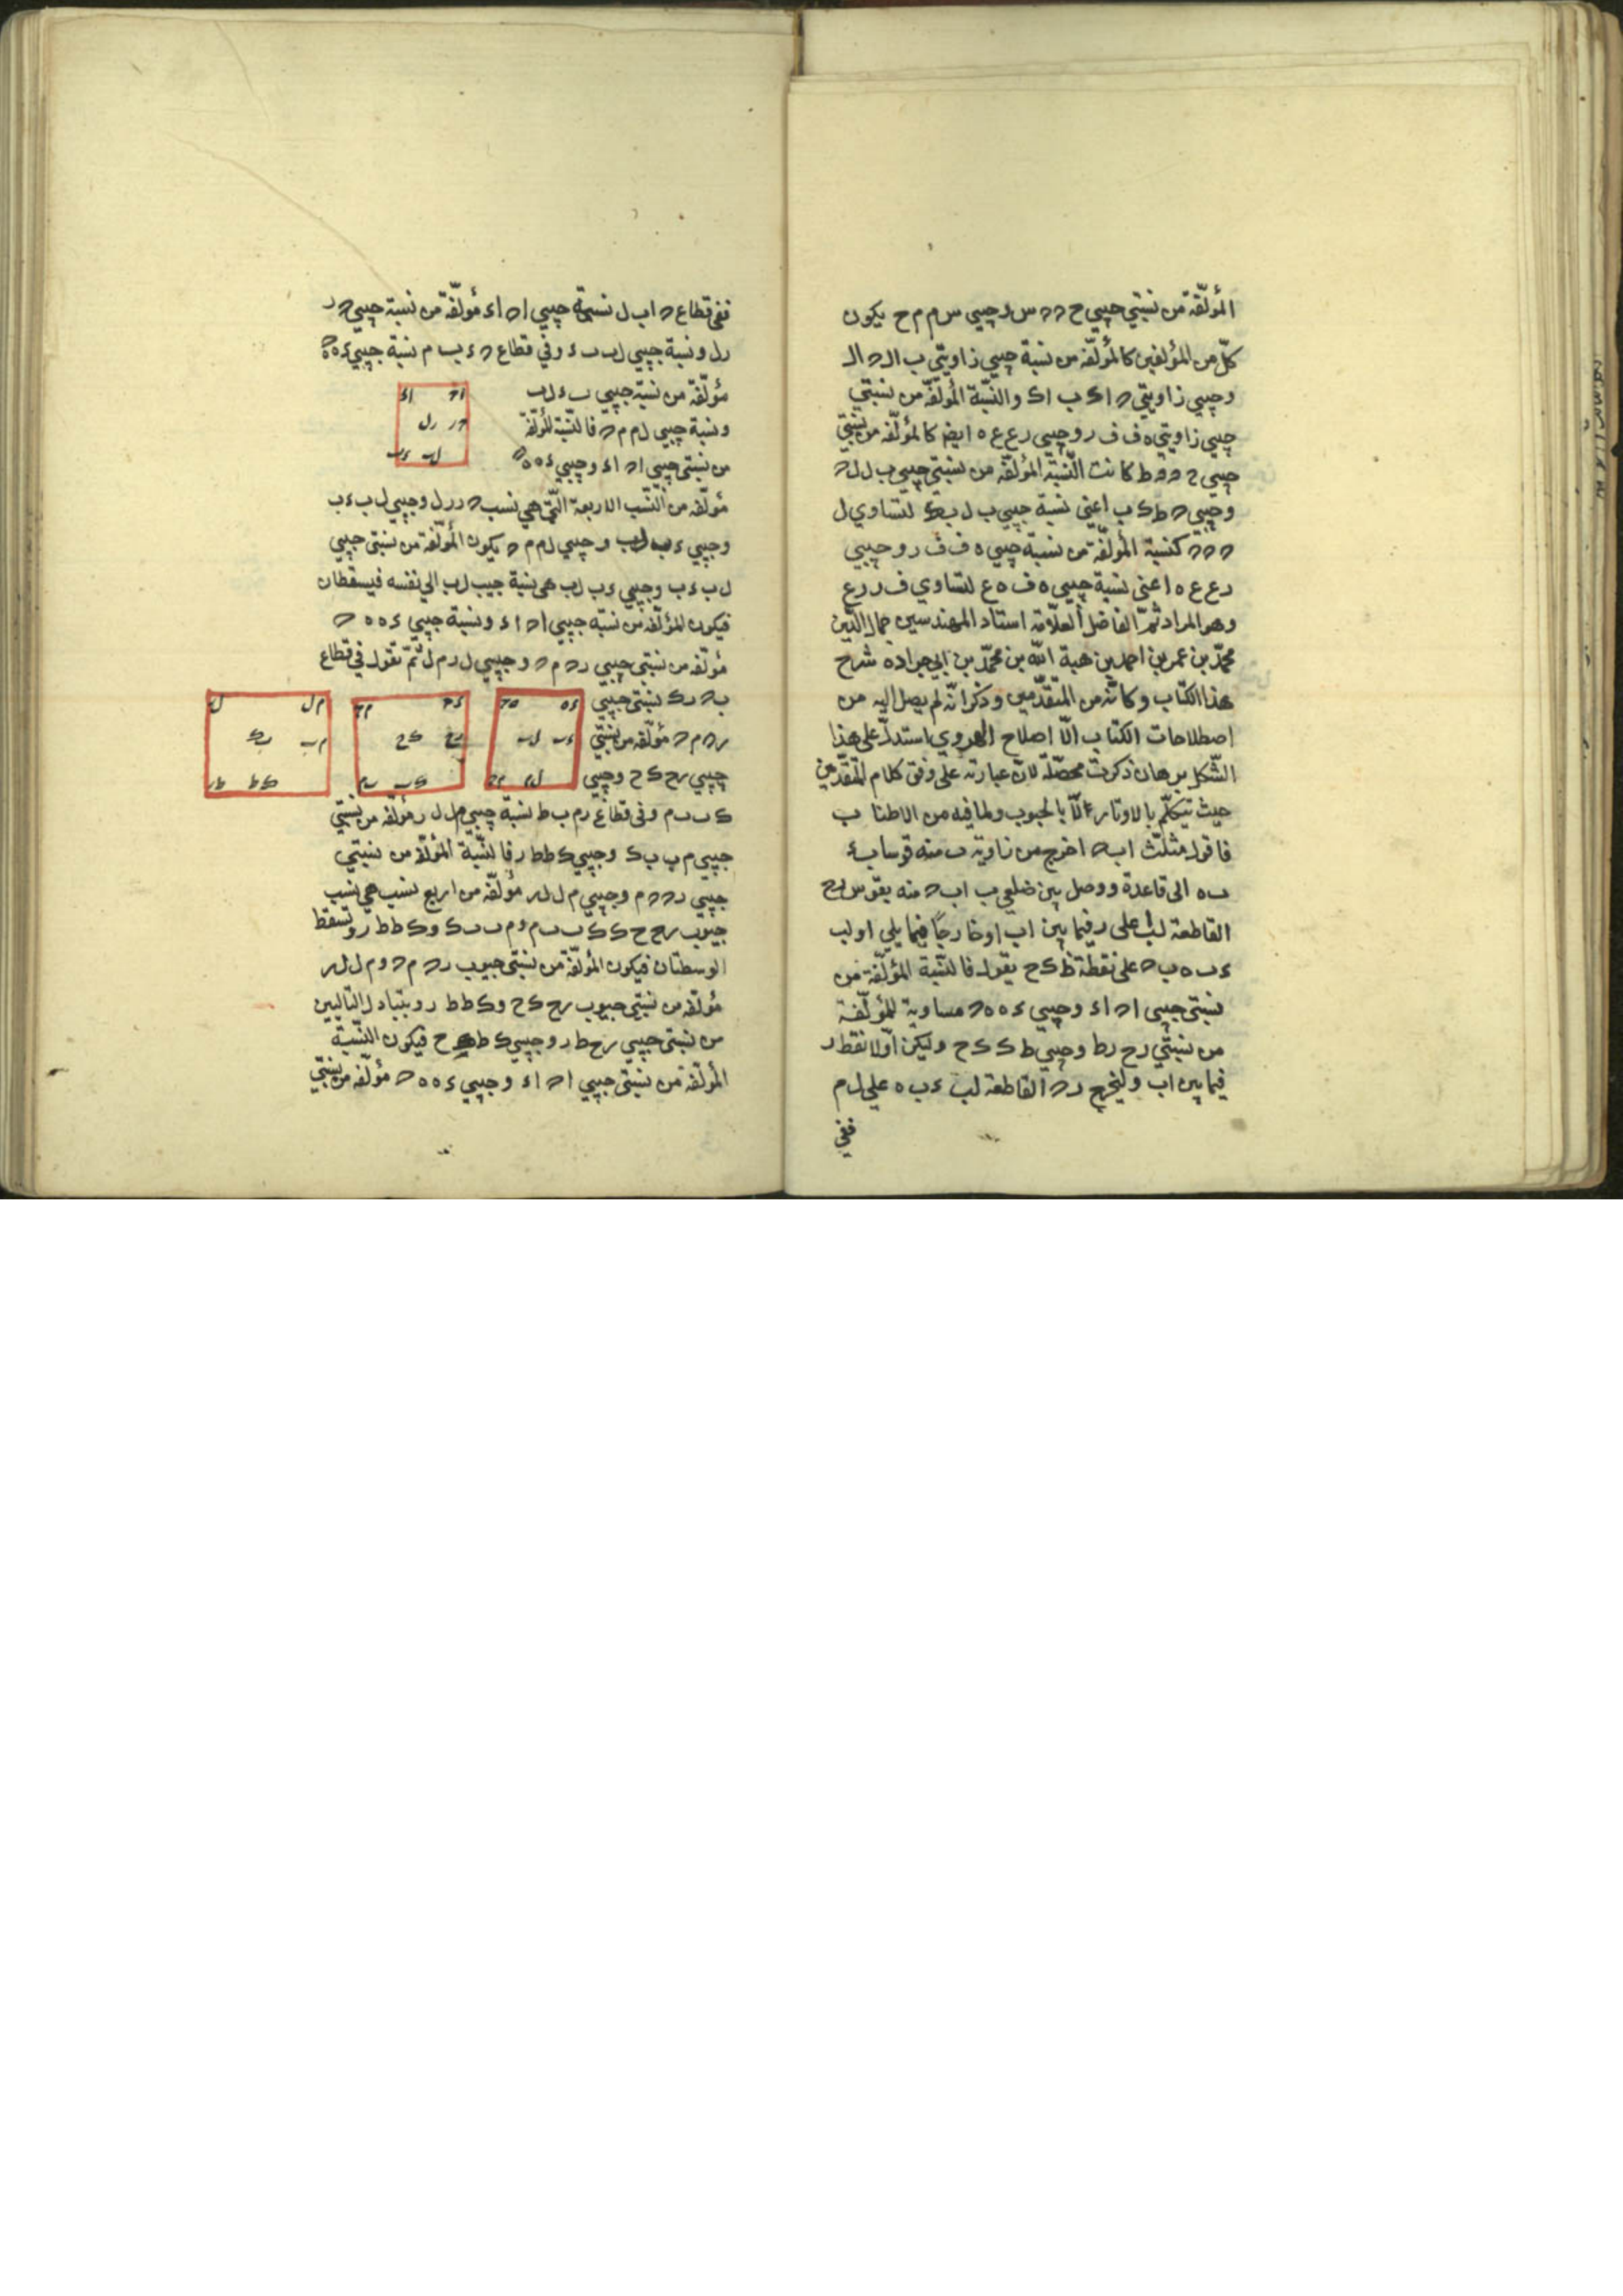 المؤلّفة من نسبتي جيبي ح ه ه س و جيبي س م م ح يكون
كلّ من المؤلفين كالمؤلّفة من نسبة جيبي زاويتي ب ال ه ال
وجيبي زاويتي ه اك ب اك والنسبة المؤلّفة من نسبتي
جيبي زاويتي ه ف ف ر وجيبي ر ع ع ه ايضا كالمؤلّفة من نسبتي
كانت النّسبة المؤلّفة من نسبتي جيبي ب ل ل ه
وجيبي ه ط ك ب اعني نسبة جيبي ب ل ب ك لتساوي ل
ه ه ه كنسبة المؤلّفة من نسبة جيبي ه ف ف ر و جيبي
ر ع ع ه اعنى نسبة جيبي ه ف ه ع لتساوي ف ر ر ع
وهو المراد ثمّ الفاضل العلّامة استاد المهندسين جمال الدّين
محمّد بن عمر بن احمد بن هبة اللّه بن محمّد بن ابي جراده شرح
هذا الكتاب وكانّه من المتقدّمين وذكر انّه لم يصل اليه من
اصطلاحات الكتاب الّا اصلاح الهروي استدلّ على هذا
الشّكل ببرهان ذكرت محصّله لانّ عبارته على وفق كلام المتقدّمين
حيث يتكلّم بالاوتار لا بالجيوب ولما فيه من الاطناب
فاقول مثلّث اب ه اخرج من زاوية ب منه قوسا ب ء
ب ه الى قاعدة ووصل بين ضلعي ب اب ه منه بقوس ر ح
القاطعة ل ب على ر فيما بين اب او خارجًا فيما يلي او لب
ء ب ه ب ه على نقطة ط ك ح يقول فالنّسبة المؤلّفة من
نسبتى جيبى اه اء وجيبي ء ه ه ه مساوية للمؤلّفة
من نسبتي ر ح ر ط وجيبي ط ك ك ح وليكن اوّلا نقط ر
فيما بين اب وليخرج ر ه القاطعة لب ء ب ه على ل م
ففي
ففي قطاع ه اب ل نسبة جيبي اه اء مؤلّفة من نسبة جيبي ه ر
ر ل ونسبة جيبي ل ب ب ء وفي قطاع ه ء ب م نسبة جيبي ء ه ه ه
مؤلّفة من نسبة جيبي ب ء ل ب
ونسبة جيبي ل م م ه فالنّسبة المؤلّفة
من نسبتى جيبى اه اء وجيبي ء ه ه ه
اه اء
ه ر ر ل
ل ب ء ب
مؤلّفة من النّسب الاربعة الّتي هي نسب ه ر ر ل وجيبي ل ب ء ب
وجيبي ء ب ل ب وجيبي ل م م ه يكون المؤلّفة من نسبتى جيبي
ل ب ء ب وجيبي ء ب ل ب هي نسبة جيب ل ب الى نفسه فيسقطان
فيكون المؤلّفة من نسبة جيبي اه اء ونسبة جيبي ء ه ه ه
مؤلّفة من نسبتى جيبي ر ه م ه وجيبي ل ر م ل ثمّ نقول في قطاع
ب ه ر ك نسبتى جيبي
ر ه م ه مؤلّفة من نسبتي
جيبي ر ح ك ح وجيبي
ء ه ه ه
ء ب ل ب
ل م م ه
ر ه م ه
ر ح ك ح
ك ب ب م
م ل ل ر
م ب ب ك
ك ط ط ر
ك ب ب م وفى قطاع ر م ب ط نسبة جيبي م ل ل ر مؤلّفة من نسبتي
جيبي م ب ب ك وجيبي ك ط ط ر فالنّسبة المؤلّفة من نسبتي
جيبي ر ه ه م وجيبي م ل ل ر مؤلّفة من اربع نسب هي نسب
جيوب ر ح ح ك ك ب ب م و م ب ب ك و ك ط ط ر وتسقط
الوسطتان فيكون المؤلّفة من نسبتى جيوب ر ه م ه و م ل ل ر
مؤلّفة من نسبتي جيوب ر ح ك ح و ك ط ط ر و بتبادل التاليين
من نسبتى جيبي ر ح ط ر وجيبي ك ط ك ح فيكون النّسبة
المؤلّفة من نسبتى جيبي اه اء وجيبي ء ه ه ه مؤلّفة من نسبتي